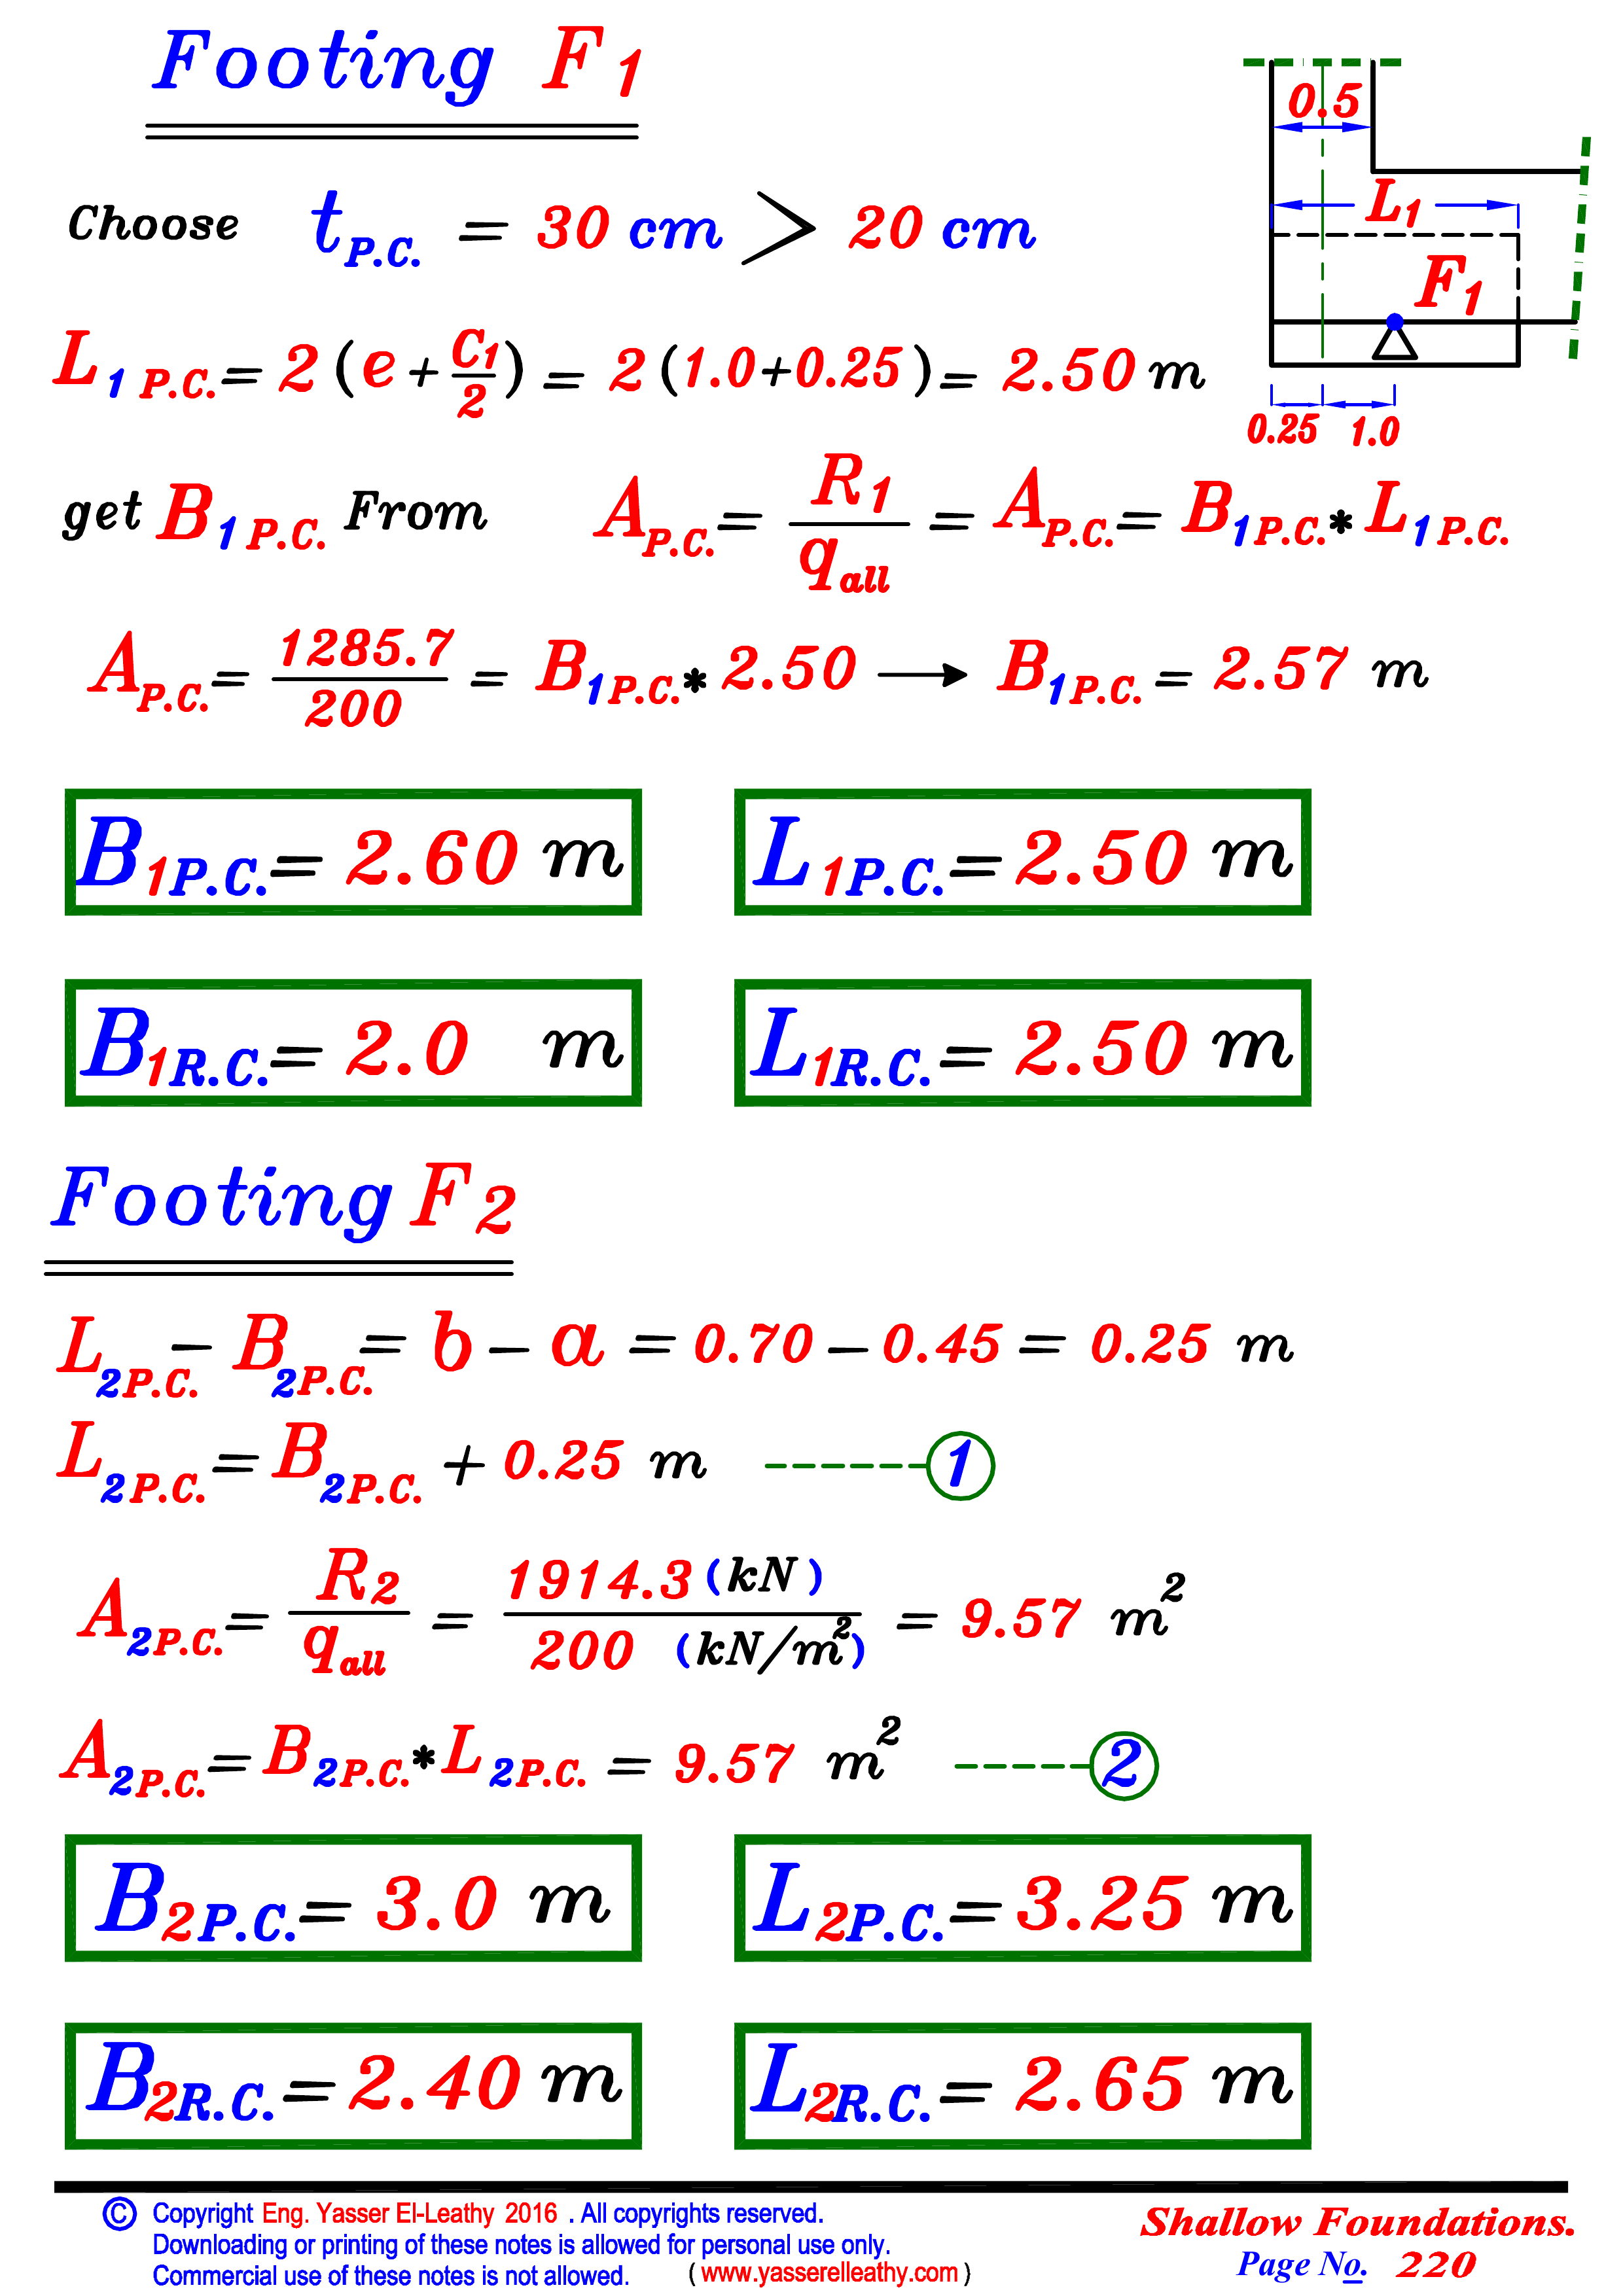 Footing F1
0.5
Choose tP.C. = 30 cm > 20 cm
L1
F1
L1 P.C. = 2 (e + C1/2) = 2 (1.0+0.25) = 2.50 m
0.25 1.0
get B1P.C. From AP.C. = R1/qall = AP.C. = B1P.C. * L1P.C.
AP.C. = 1285.7/200 = B1P.C. * 2.50 → B1P.C. = 2.57 m
B1P.C. = 2.60 m L1P.C. = 2.50 m
B1R.C. = 2.0 m L1R.C. = 2.50 m
Footing F2
L2P.C. – B2P.C. = b – a = 0.70 – 0.45 = 0.25 m
L2P.C. = B2P.C. + 0.25 m ------ 1
A2P.C. = R2/qall = 1914.3 (kN) / 200 (kN/m²) = 9.57 m²
A2P.C. = B2P.C. * L2P.C. = 9.57 m² ------ 2
B2P.C. = 3.0 m L2P.C. = 3.25 m
B2R.C. = 2.40 m L2R.C. = 2.65 m
© Copyright Eng. Yasser El-Leathy 2016 . All copyrights reserved.
Downloading or printing of these notes is allowed for personal use only.
Commercial use of these notes is not allowed. ( www.yasserelleathy.com )
Shallow Foundations.
Page No. 220